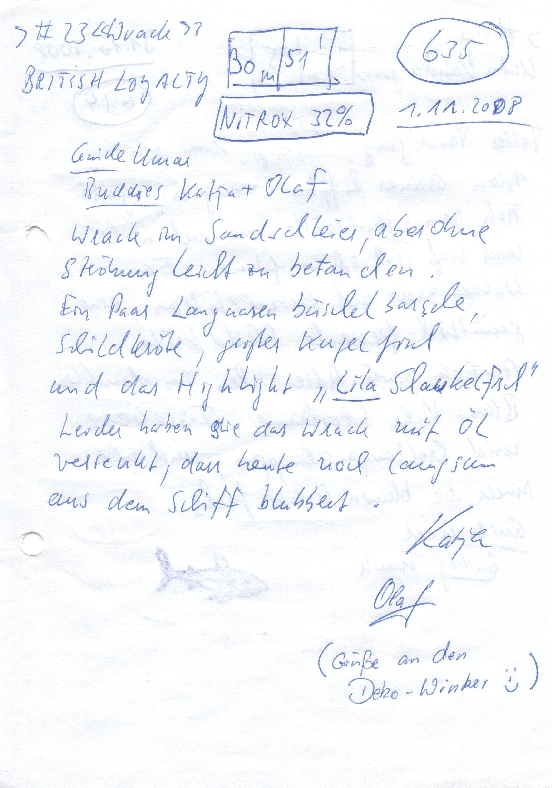 > # 23 <Wrack> 23
BRITISH LOYALTY
30m 51'
635
NITROX 32%
1.11.2008
Guide Umar
Buddies Katja + Olaf
Wrack im Sandschleier, aber ohne
Ströhmung leicht zu betauchen.
Ein Paar Langnasen büschel barsche,
Schildkröte, großer Kugelfisch
und das Highlight „Lila Slaukelfisch"
Leider haben sie das Wrack mit Öl
versenkt, dass heute noch langsam
aus dem Schiff blubbert.
Katja
Olaf
(Grüße an den
Deko-Winker :))